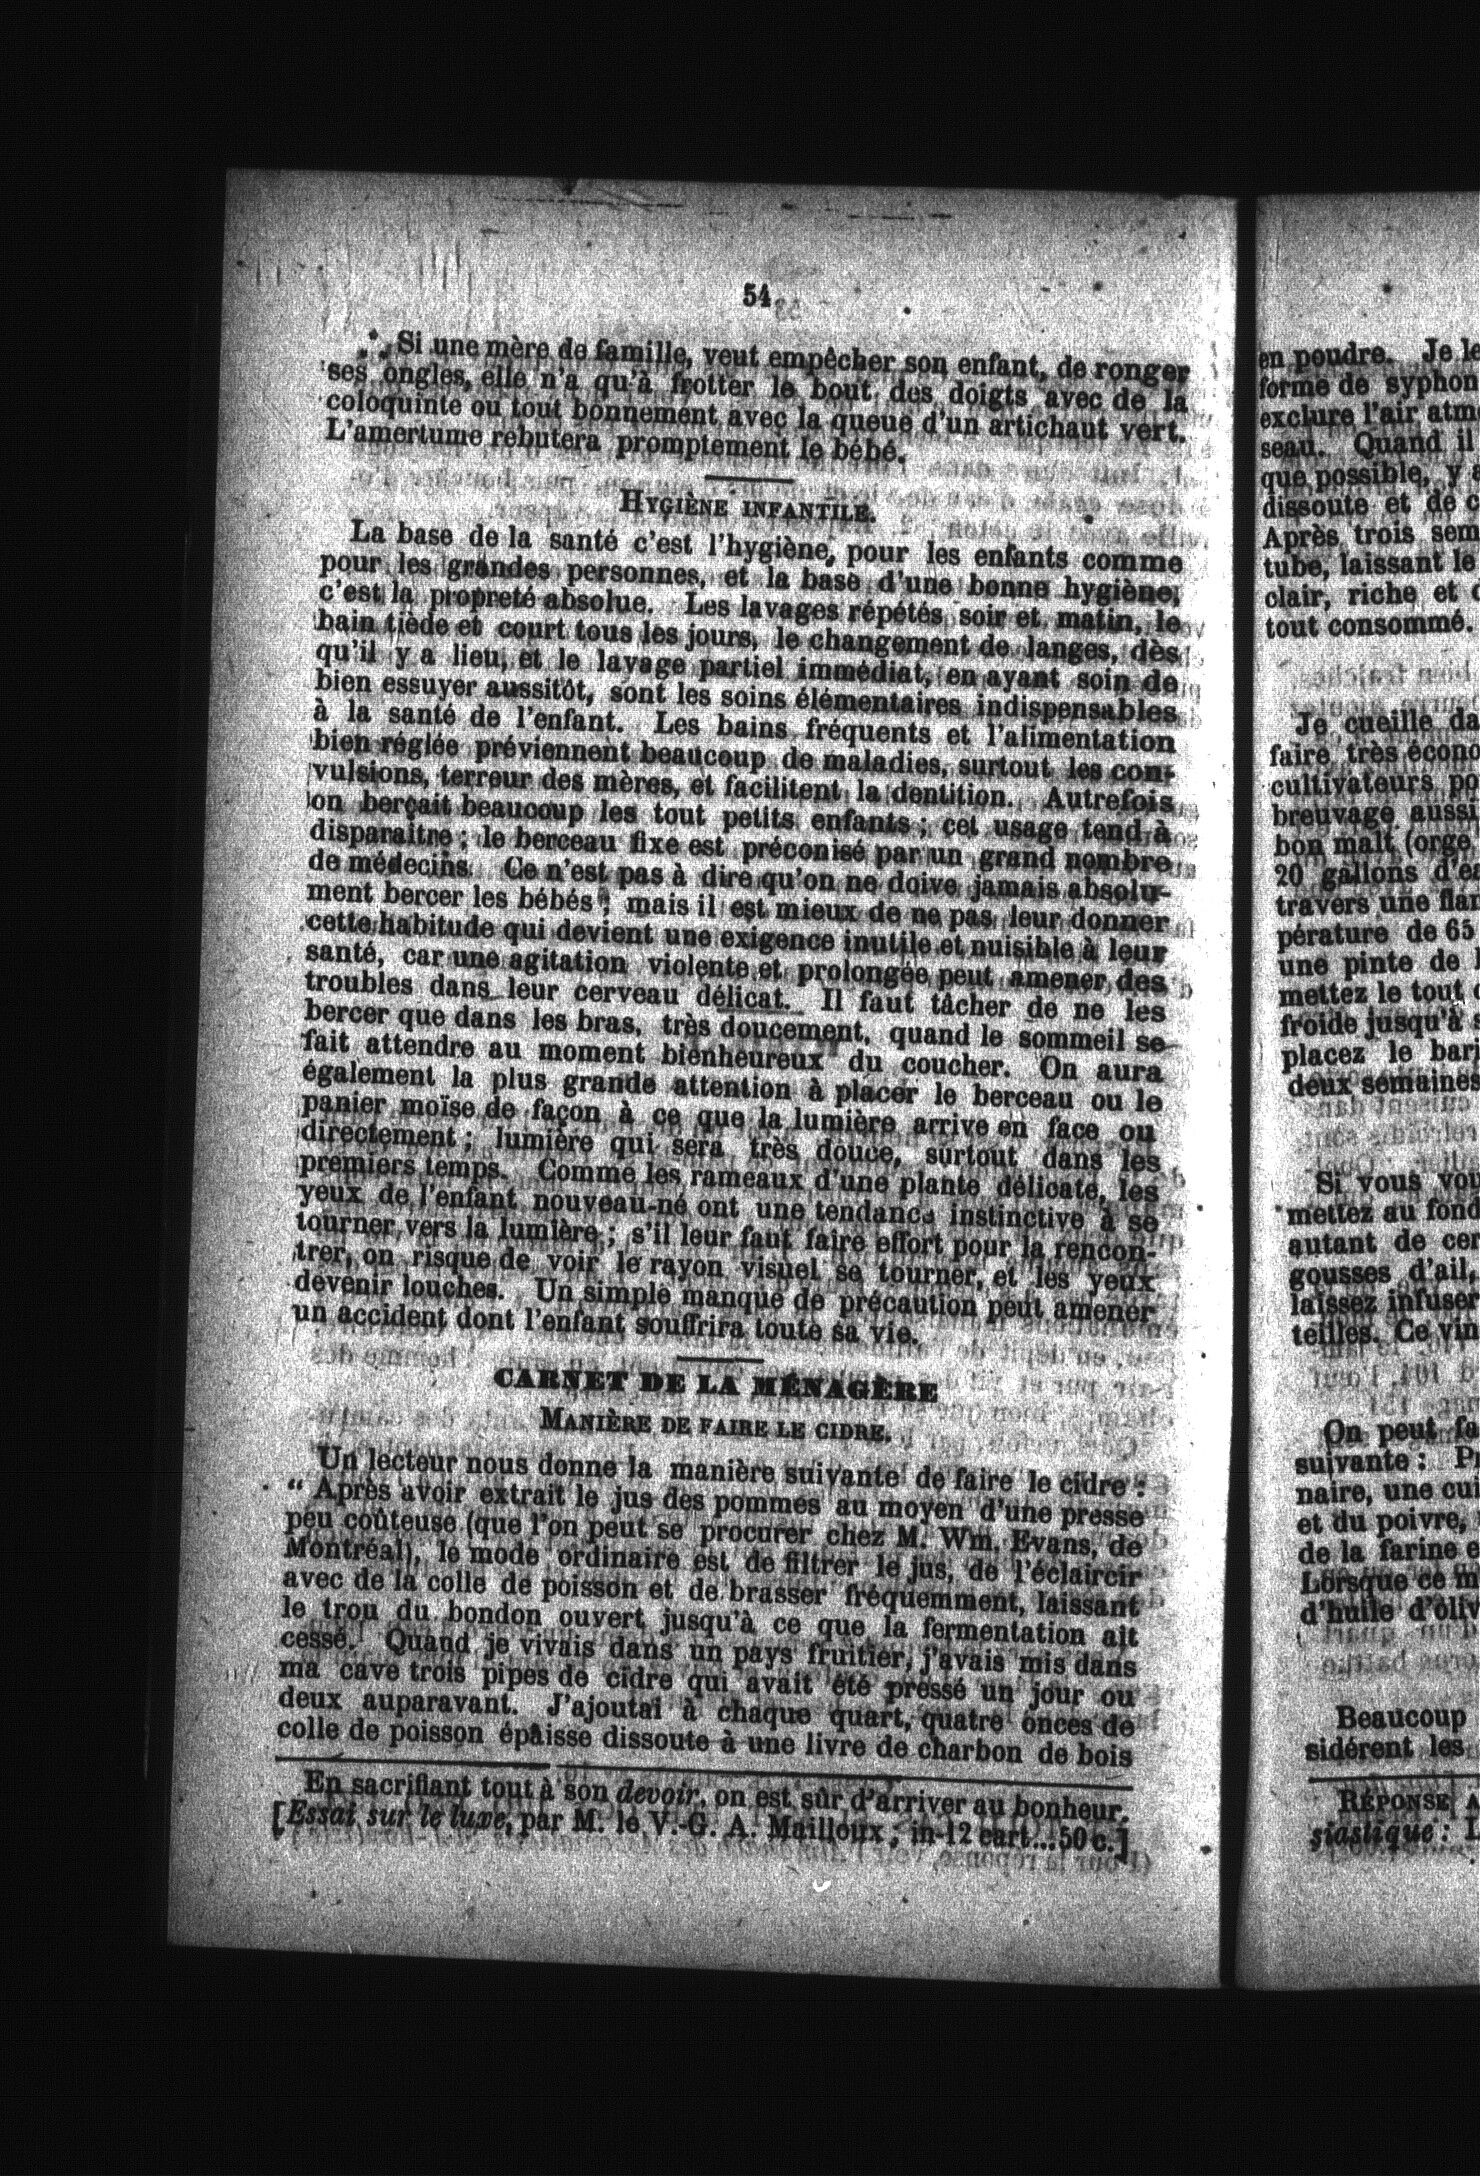 54
∴ Si une mère de famille, veut empêcher son enfant, de ronger
ses ongles, elle n'a qu'à frotter le bout des doigts avec de la
coloquinte ou tout bonnement avec la queue d'un artichaut vert.
L'amertume rebutera promptement le bébé.
HYGIÈNE INFANTILE.
La base de la santé c'est l'hygiène, pour les enfants comme
pour les grandes personnes, et la base d'une bonne hygiène,
c'est la propreté absolue. Les lavages répétés soir et matin, le
bain tiède et court tous les jours, le changement de langes, dès
qu'il y a lieu, et le lavage partiel immédiat, en ayant soin de
bien essuyer aussitôt, sont les soins élémentaires indispensables
à la santé de l'enfant. Les bains fréquents et l'alimentation
bien réglée préviennent beaucoup de maladies, surtout les con-
vulsions, terreur des mères, et facilitent la dentition. Autrefois
on berçait beaucoup les tout petits enfants ; cet usage tend à
disparaître ; le berceau fixe est préconisé par un grand nombre
de médecins. Ce n'est pas à dire qu'on ne doive jamais absolu-
ment bercer les bébés ; mais il est mieux de ne pas leur donner
cette habitude qui devient une exigence inutile et nuisible à leur
santé, car une agitation violente et prolongée peut amener des
troubles dans leur cerveau délicat. Il faut tâcher de ne les
bercer que dans les bras, très doucement, quand le sommeil se
fait attendre au moment bienheureux du coucher. On aura
également la plus grande attention à placer le berceau ou le
panier moïse de façon à ce que la lumière arrive en face ou
directement ; lumière qui sera très douce, surtout dans les
premiers temps. Comme les rameaux d'une plante délicate, les
yeux de l'enfant nouveau-né ont une tendance instinctive à se
tourner vers la lumière ; s'il leur faut faire effort pour la rencon-
trer, on risque de voir le rayon visuel se tourner, et les yeux
devenir louches. Un simple manque de précaution peut amener
un accident dont l'enfant souffrira toute sa vie.
CARNET DE LA MÉNAGÈRE
MANIÈRE DE FAIRE LE CIDRE.
Un lecteur nous donne la manière suivante de faire le cidre :
“ Après avoir extrait le jus des pommes au moyen d'une presse
peu coûteuse (que l'on peut se procurer chez M. Wm. Evans, de
Montréal), le mode ordinaire est de filtrer le jus, de l'éclaircir
avec de la colle de poisson et de brasser fréquemment, laissant
le trou du bondon ouvert jusqu'à ce que la fermentation ait
cessé. Quand je vivais dans un pays fruitier, j'avais mis dans
ma cave trois pipes de cidre qui avait été pressé un jour ou
deux auparavant. J'ajoutai à chaque quart, quatre onces de
colle de poisson épaisse dissoute à une livre de charbon de bois
En sacrifiant tout à son devoir, on est sûr d'arriver au bonheur.
[Essai sur le luxe, par M. le V.-G. A. Mailloux ; in-12 cart...50 c.]
en poudre. Je le
forme de syphon
exclure l'air atm
seau. Quand il
que possible, y a
dissoute et de c
Après trois sem
tube, laissant le
clair, riche et
tout consommé.
Je cueille da
faire très écono
cultivateurs po
breuvage aussi
bon malt (orge
20 gallons d'ea
travers une flan
pérature de 65
une pinte de l
mettez le tout
froide jusqu'à
placez le bari
deux semaines
Si vous vou
mettez au fond
autant de cer
gousses d'ail,
laissez infuser
teilles. Ce vin
On peut fa
suivante : Pr
naire, une cui
et du poivre,
de la farine e
Lorsque ce m
d'huile d'oliv
Beaucoup
sidèrent les
RÉPONSE A
siastique : L